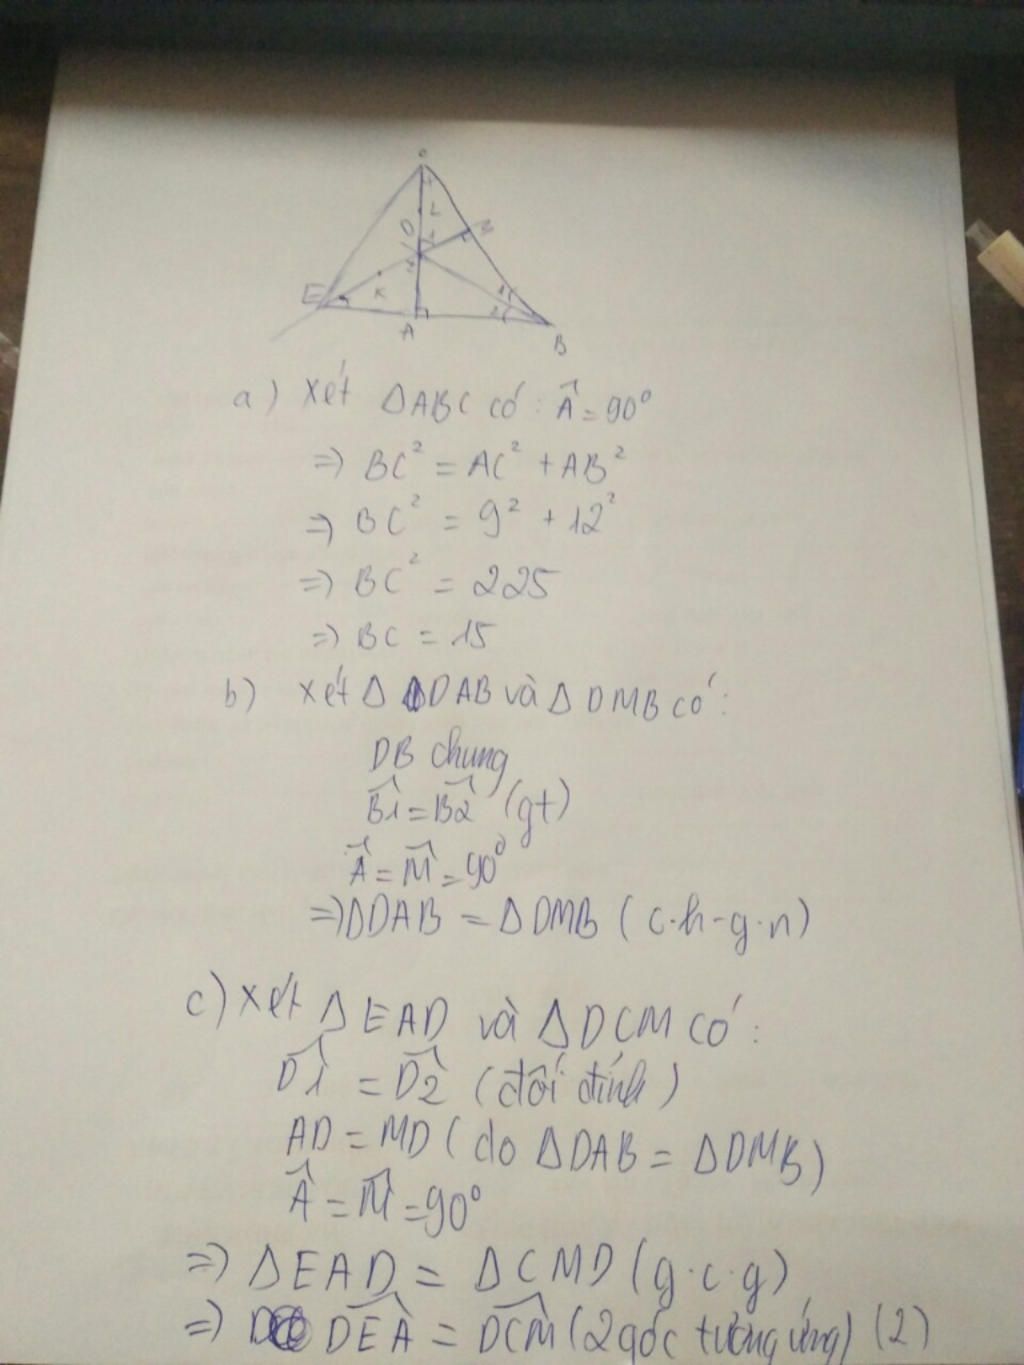 C
L
D
1
M
2
E
K
1
2
A
B
a) Xét ΔABC có: Â = 90⁰
=> BC² = AC² + AB²
=> BC² = 9² + 12²
=> BC² = 225
=> BC = 15
b) Xét Δ DAB và Δ DMB có:
DB chung
B̂1 = B̂2 (gt)
Â = M̂ = 90⁰
=> ΔDAB = ΔDMB (c.h-g.n)
c) Xét ΔEAD và ΔDCM có:
D̂1 = D̂2 (đối đỉnh)
AD = MD (do ΔDAB = ΔDMB)
Â = M̂ = 90⁰
=> ΔEAD = ΔCMD (g.c.g)
=> DÊA = DĈM (2 góc tương ứng) (2)